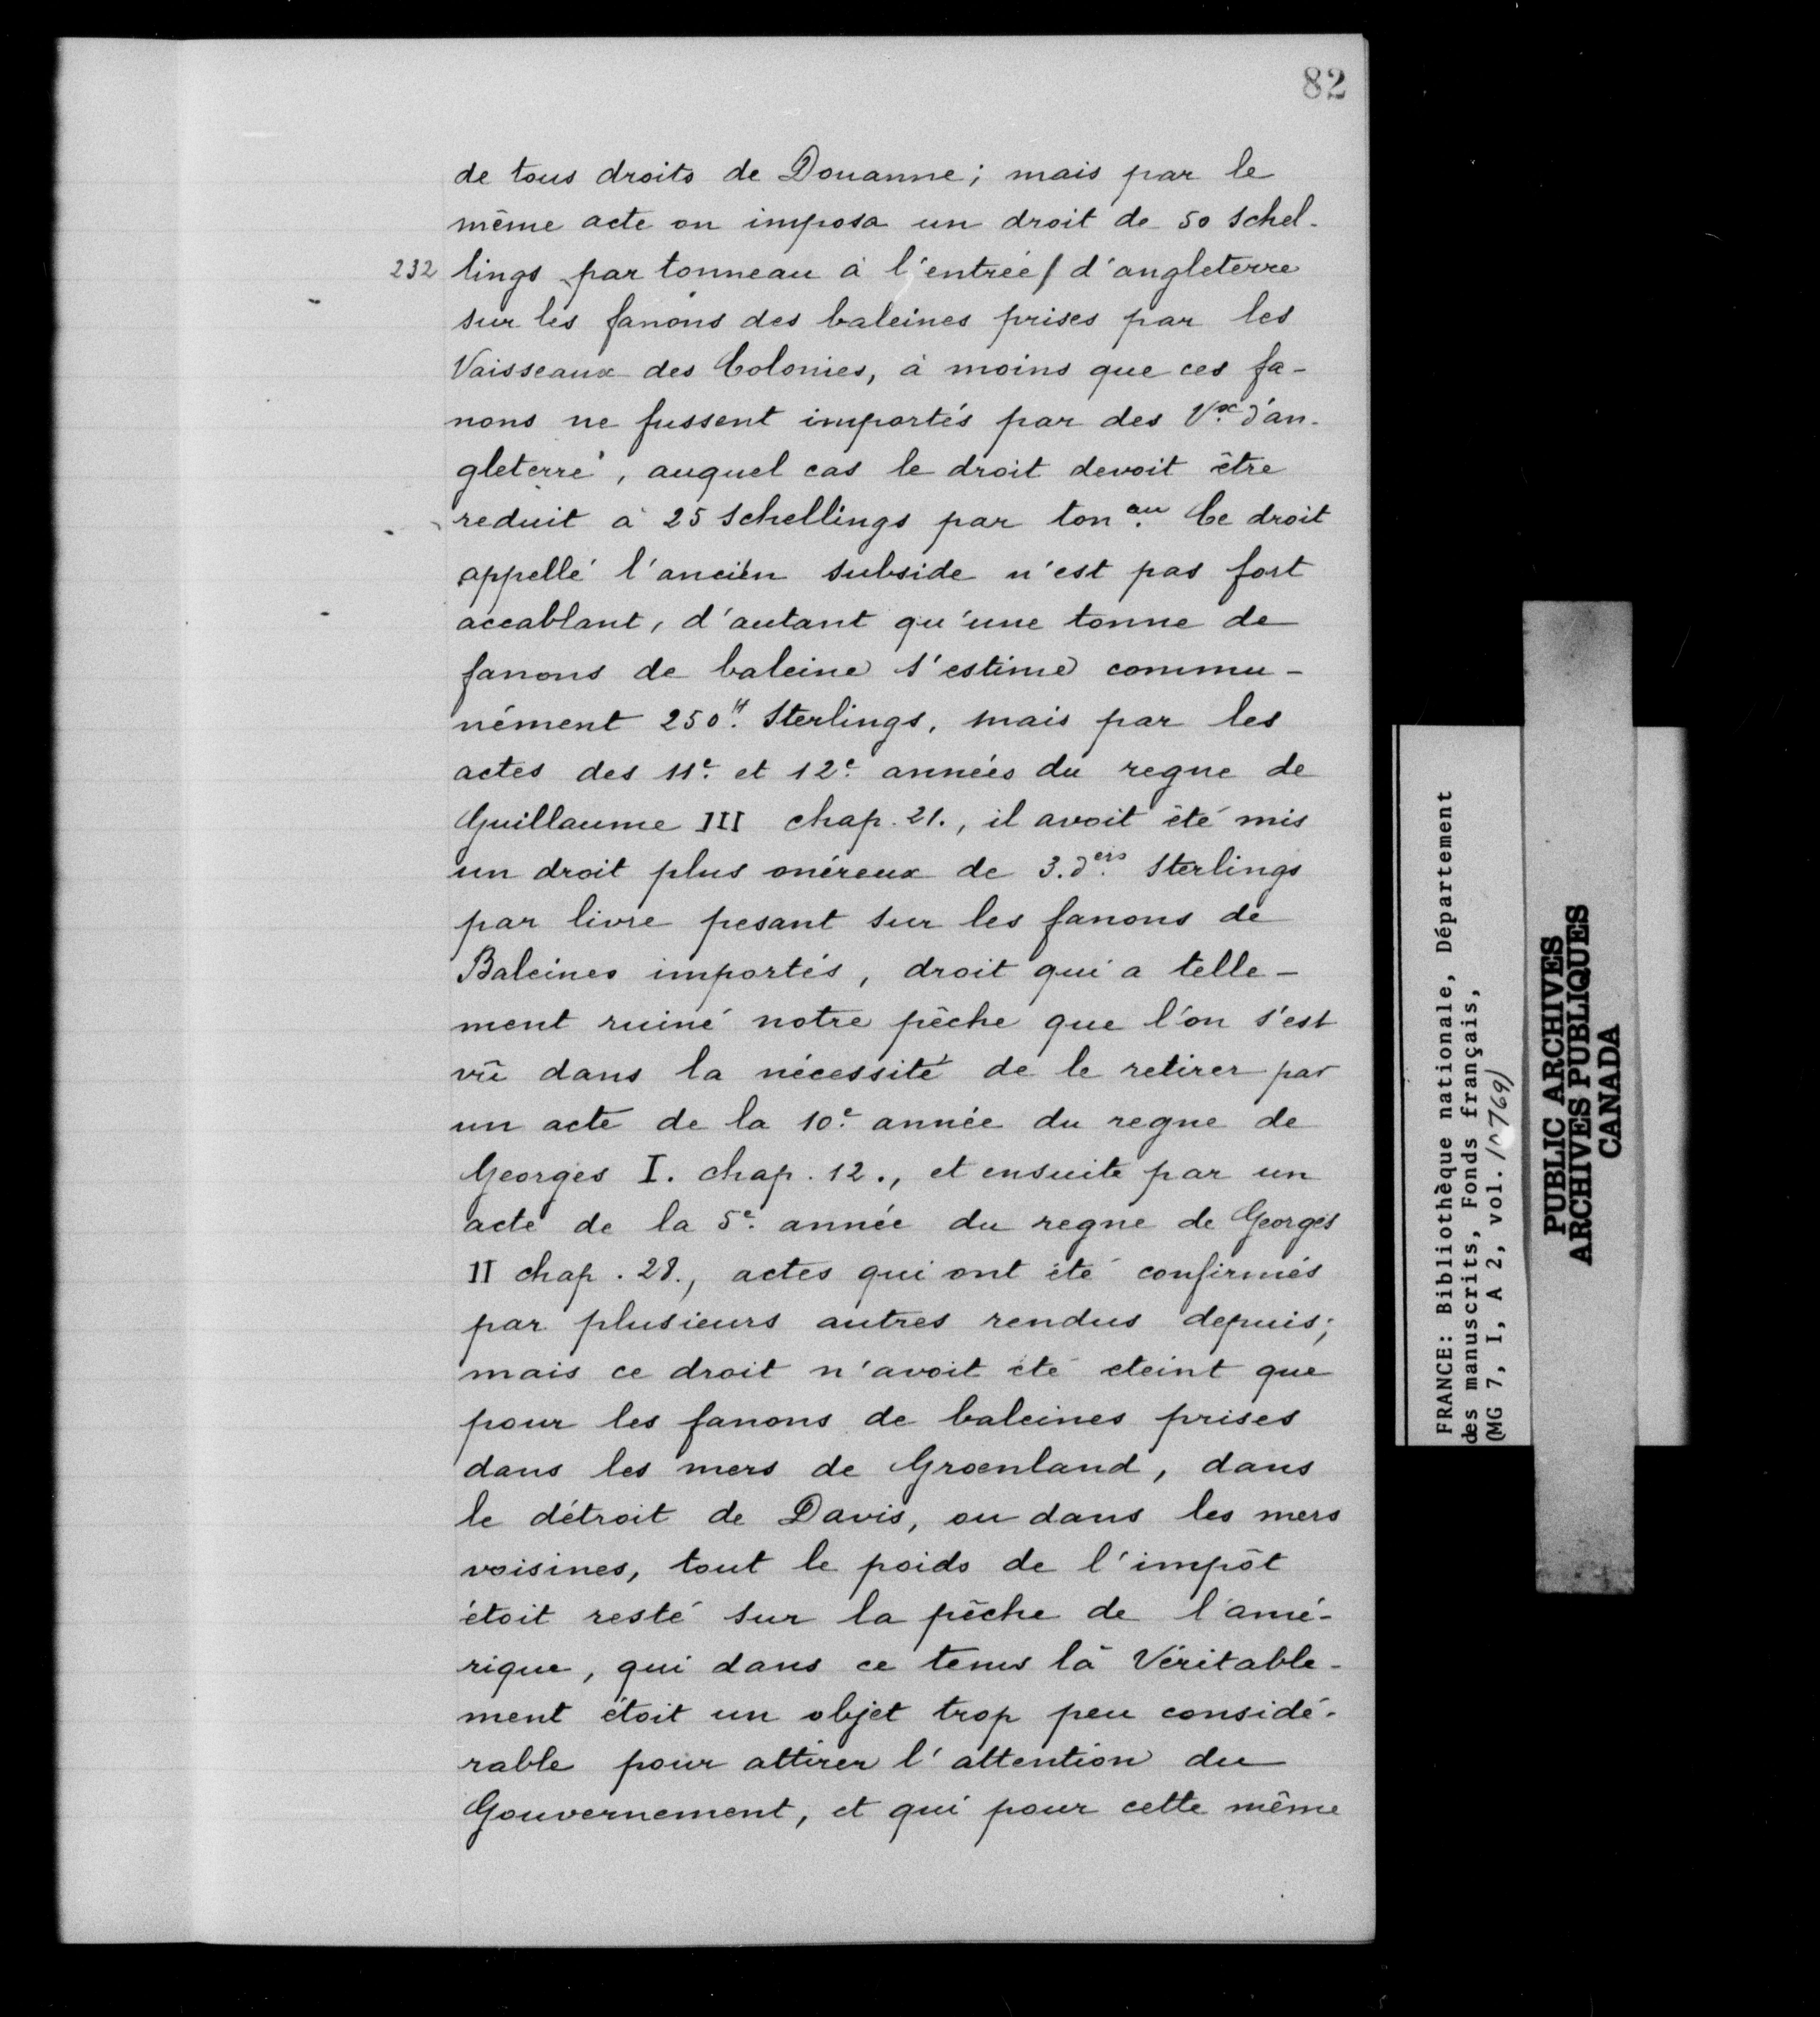 82
de tous droits de Douanne; mais par le
même acte on imposa un droit de 50 schel-
232 lings par tonneau à l'entrée / d'angleterre
sur les fanons des baleines prises par les
Vaisseaux des Colonies, à moins que ces fa-
nons ne fussent importés par des Vx. d'an-
gleterre, auquel cas le droit devoit être
reduit à 25 schellings par tonau. Ce droit
appellé l'ancien subside n'est pas fort
accablant, d'autant qu'une tonne de
fanons de baleine s'estime commu-
nément 250tt. Sterlings, mais par les
actes des 11e. et 12e. années du regne de
Guillaume III chap. 21., il avoit été mis
un droit plus onéreux de 3. ders. Sterlings
par livre pesant sur les fanons de
Baleines importés, droit qui a telle-
ment ruiné notre pêche que l'on s'est
vû dans la nécessité de le retirer par
un acte de la 10e. année du regne de
Georges I. chap. 12., et ensuite par un
acte de la 5e. année du regne de Georges
II chap. 28., actes qui ont été confirmés
par plusieurs autres rendus depuis;
mais ce droit n'avoit été eteint que
pour les fanons de baleines prises
dans les mers de Groenland, dans
le détroit de Davis, ou dans les mers
voisines, tout le poids de l'impôt
étoit resté sur la pêche de l'amé-
rique, qui dans ce tems là Véritable-
ment étoit un objet trop peu considé-
rable pour attirer l'attention du
Gouvernement, et qui pour cette même
FRANCE: Bibliothèque nationale, Département
des manuscrits, Fonds français,
(MG 7, I, A 2, vol. 10769)
PUBLIC ARCHIVES
ARCHIVES PUBLIQUES
CANADA